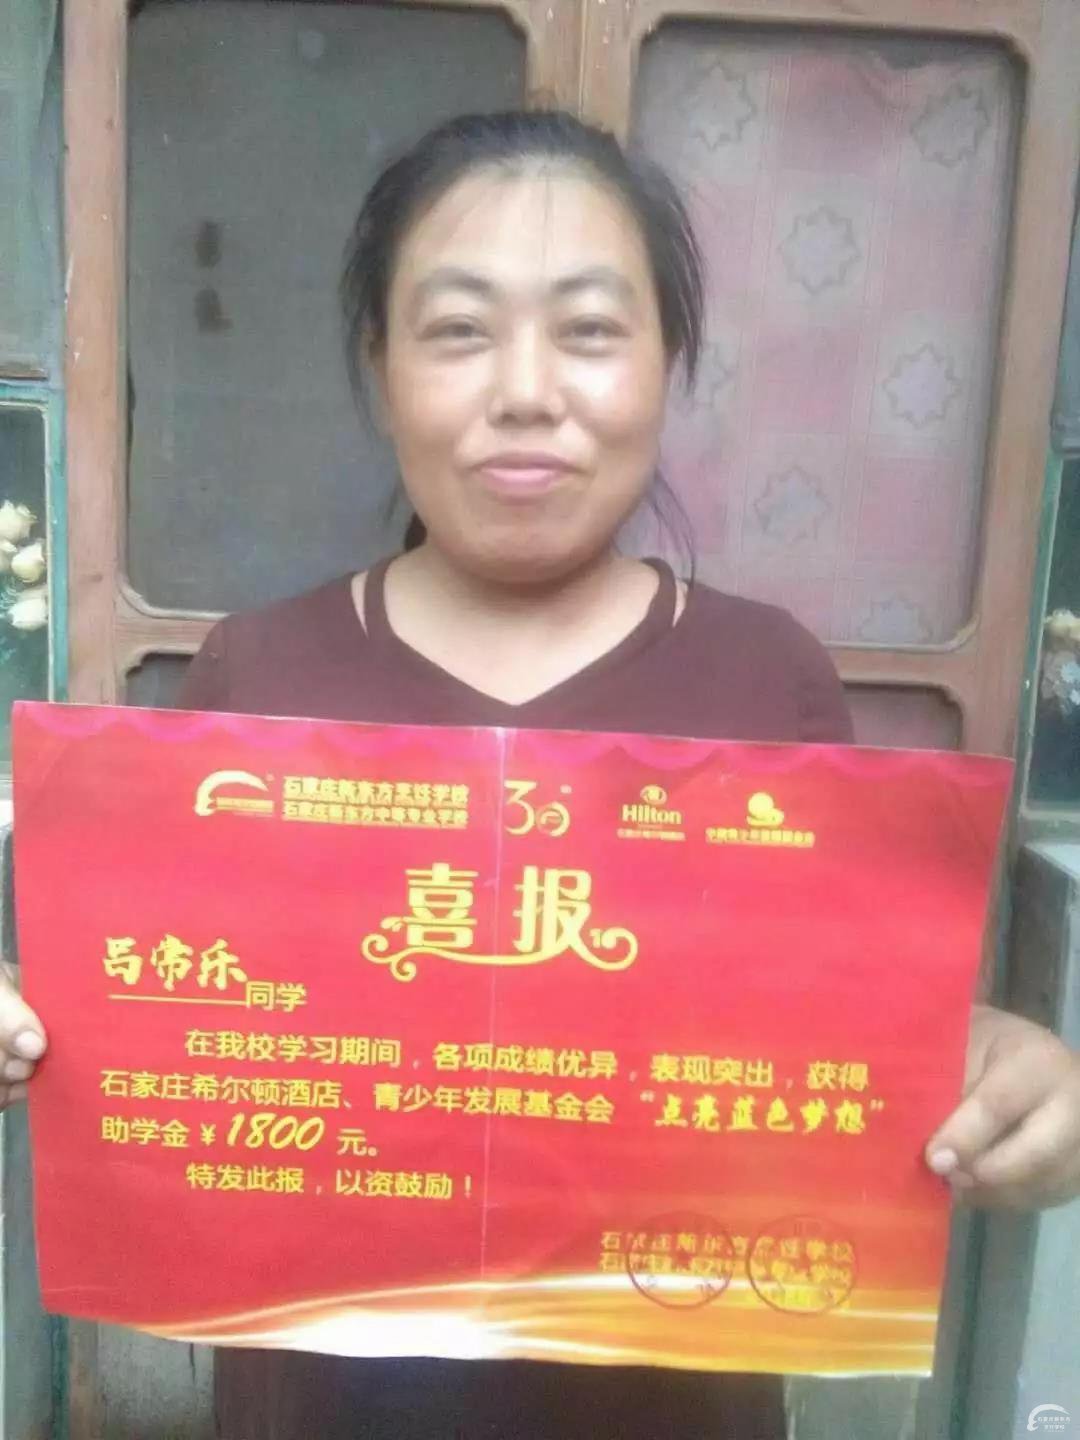 石家庄新东方烹饪学校
石家庄新东方中等专业学校
30
Hilton
喜报
吕常乐同学
在我校学习期间，各项成绩优异，表现突出，获得
石家庄希尔顿酒店、青少年发展基金会“点亮蓝色梦想”
助学金￥1800元。
特发此报，以资鼓励！
石家庄新东方烹饪学校